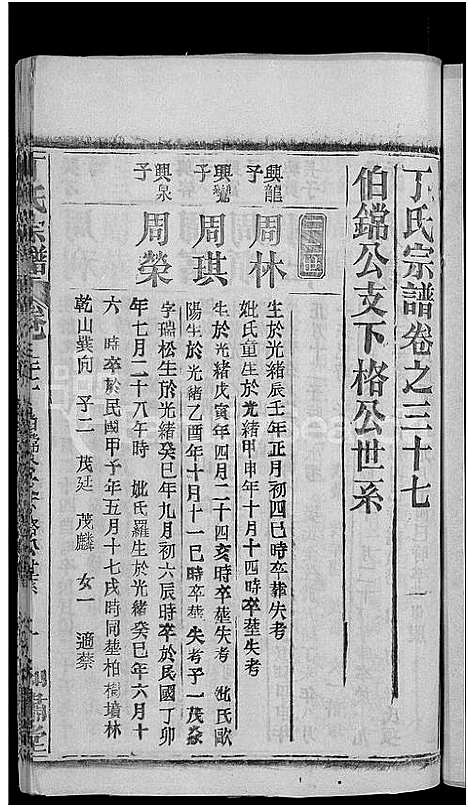 丁氏宗譜卷之三十七
伯鐋公支下格公世系
興龍子
周林
生於光緒辰壬年正月初四巳時卒葬失考
妣氏童生於光緒甲申年十月十四時卒塟失考
興鸞子
周琪
生於光緒戊寅年四月二十四亥時卒塟失考 妣氏歐
陽生於光緒乙酉年十月十一巳時卒塟失考子一茂焱
興泉子
周榮
字瑞松生於光緒癸巳年九月初六辰時卒於民國丁卯
年七月二十八年時 妣氏羅生於光緒癸巳年六月十
六 時卒於民國甲子年五月十七戌時同塟柏樹墳林
乾山巽向 子二 茂廷 茂麟 女一 適蔡
丁氏宗譜